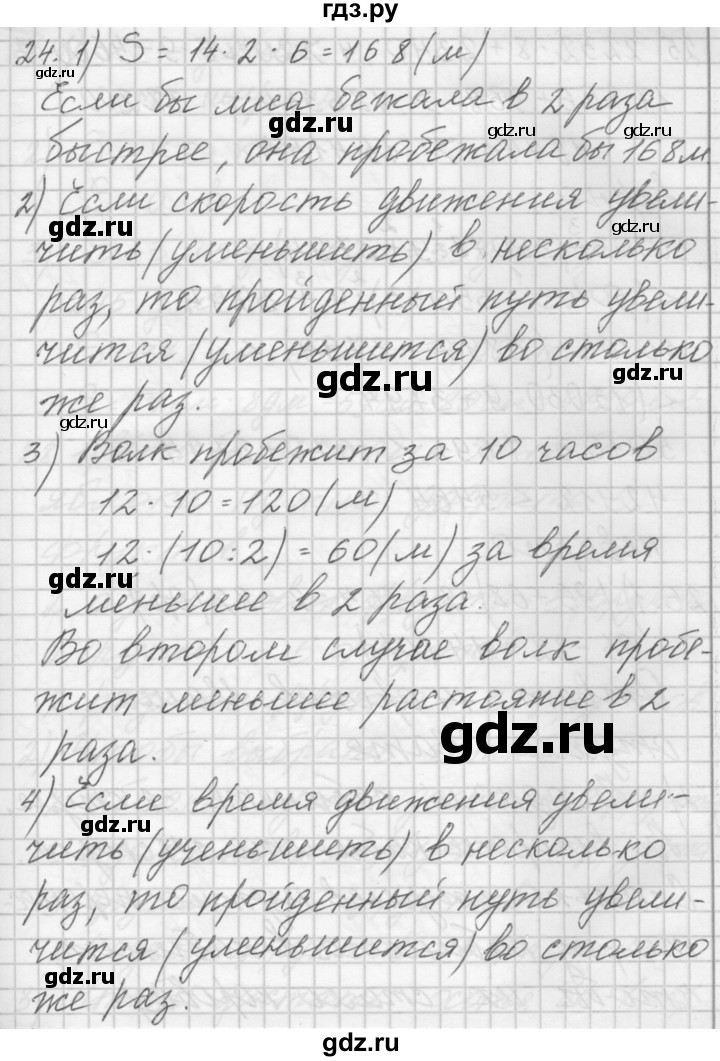 гдз.ру
24. 1) S = 14 · 2 · 6 = 168 (м)
Если бы лиса бежала в 2 раза
gdz.ru
gdz.ru
gdz.ru
быстрее, она пробежала бы 168м
2) Если скорость движения увели-
gdz.ru
gdz.ru
чить (уменьшить) в несколько
раз, то пройденный путь увели-
чится (уменьшится) во столько
gdz.ru
же раз.
gdz.ru
3) Волк пробежит за 10 часов
12 · 10 = 120 (м)
12 · (10 : 2) = 60 (м) за время
gdz.ru
меньшее в 2 раза.
Во втором случае волк пробе-
жит меньшее растояние в 2
gdz.ru
раза.
4) Если время движения увели-
gdz.ru
чить (ученьшить) в несколько
раз, то пройденный путь увели-
чится (уменьшится) во столько
gdz.ru
же раз.
gdz.ru